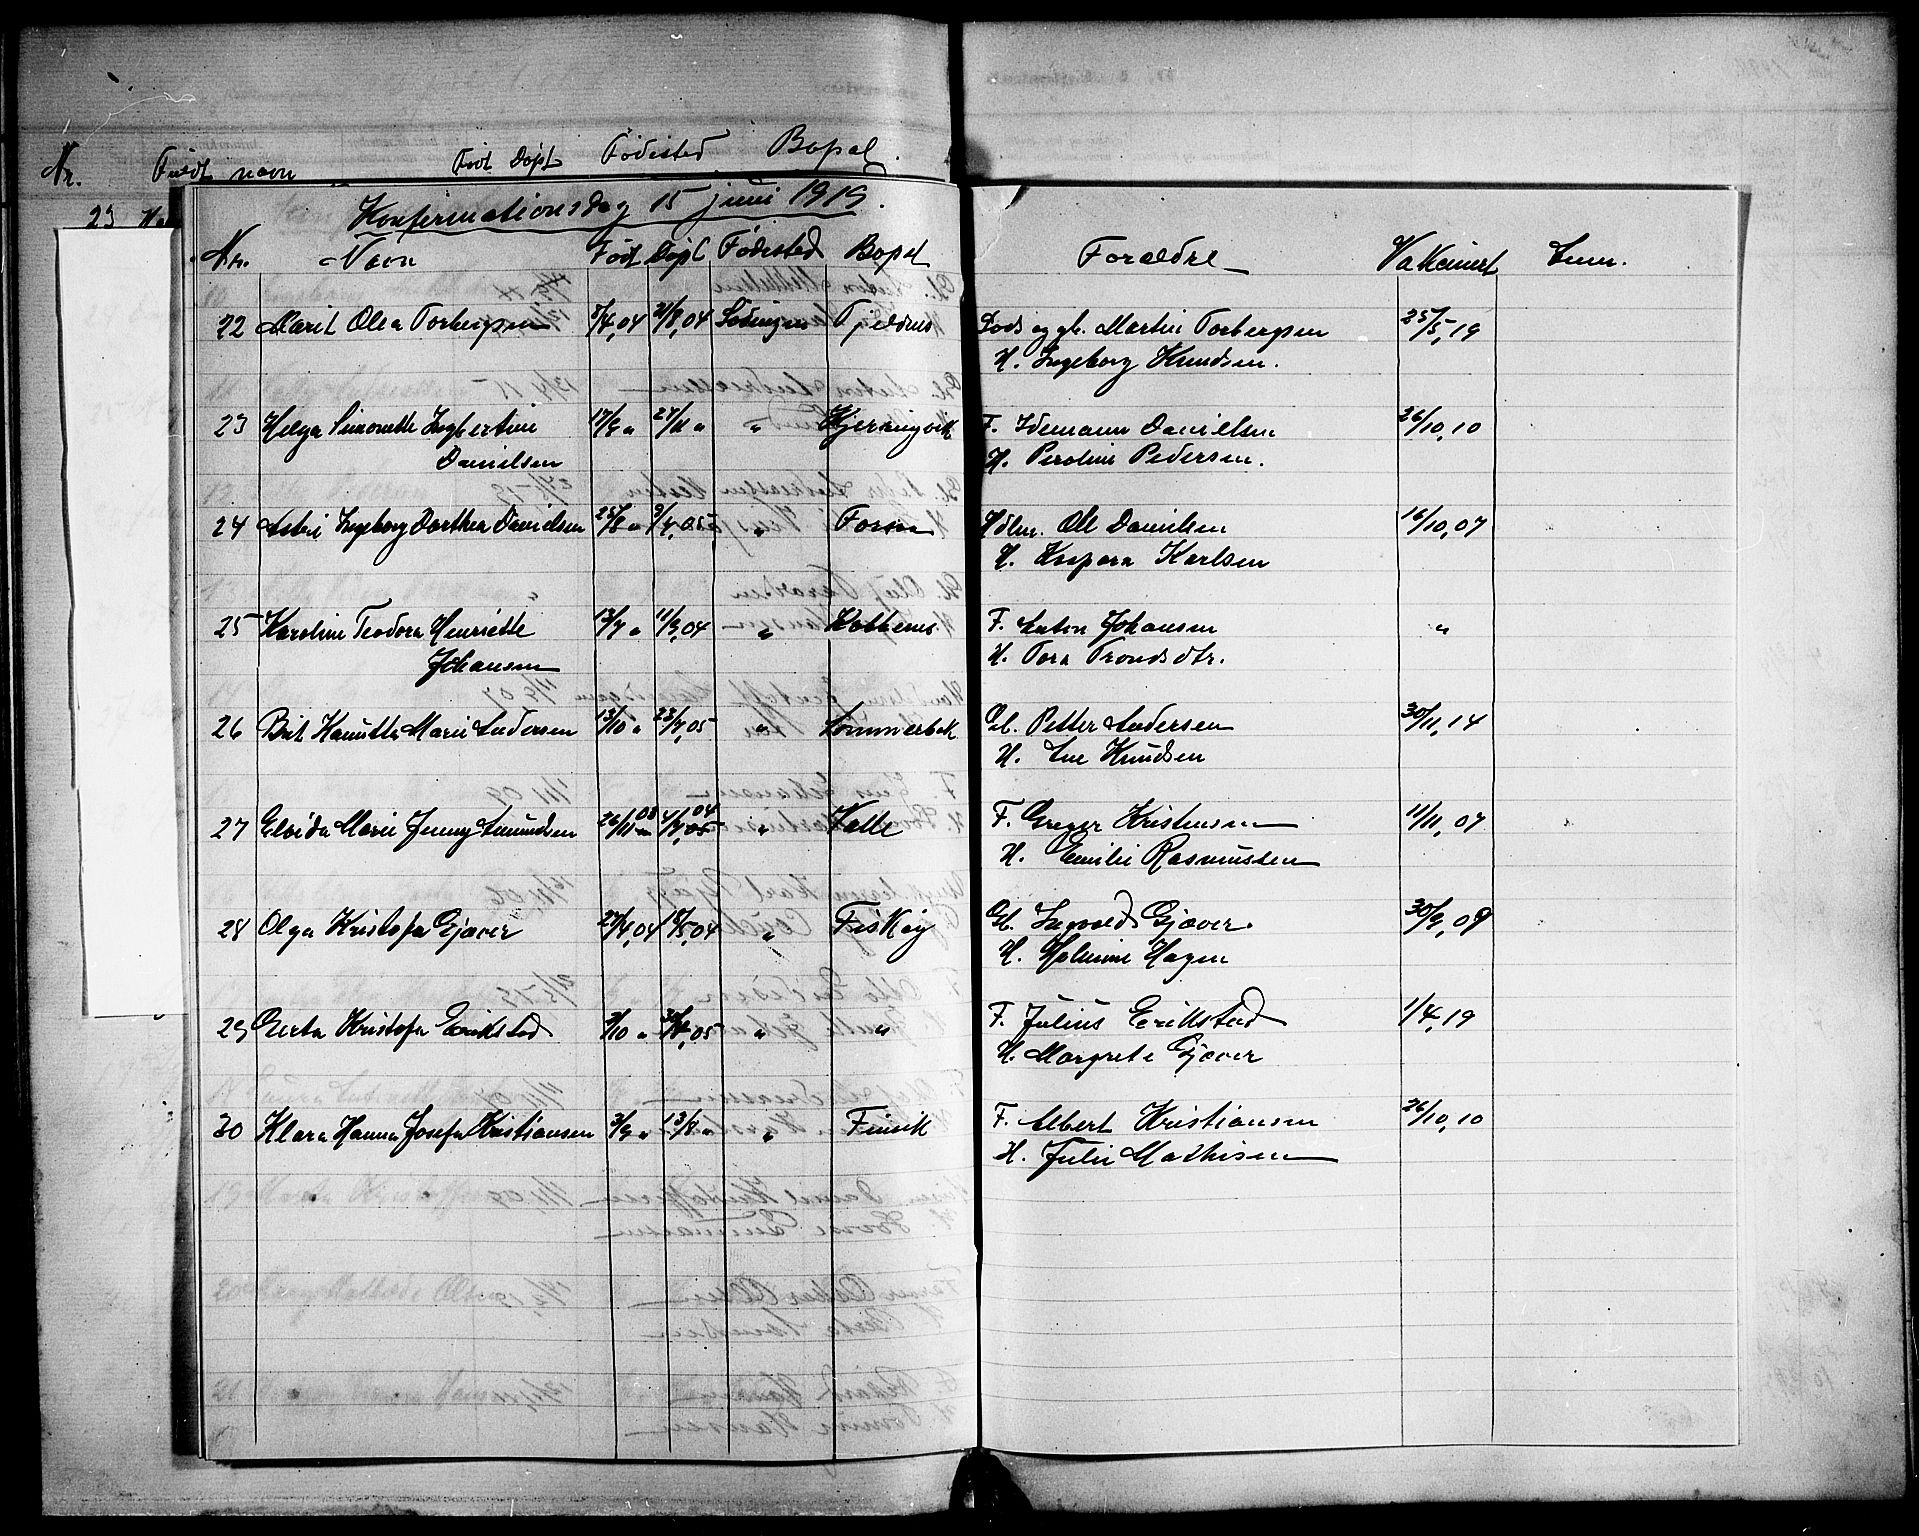 Nr. Fuldt navn Født Døpt Fødested Bopæl.
23
Konfirmationsdag 15 juni 1919.
Nr. Navn Født Døpt Fødested Bopæl Forældre Vaksinert Anm.
22 Marit Olea Torbergsen 8/4,04 21/8,04 Lødingen Tjeldnes Døds og gb. Martin Torbergsen 25/5,19
H. Ingeborg Knudsen.
23 Helga Simonette Ingbertine 17/9 " 27/11 " " Kjerringvik F. Idemann Danielsen 26/10,10
Danielsen H. Peroline Pedersen.
24 Astri Ingeborg Dorthea Danielsen 25/8 " 3/4,05 " Forsa Hdlm. Ole Danielsen 16/10,07
H. Kaspara Karlsen
25 Karoline Teodora Henriette 13/7 " 11/9,04 " Kobbenes F. Anton Johansen "
Johansen H. Tora Trondsdtr.
26 Brit Hanutta Marie Andersen 13/10 " 23/7,05 " Sommerbak Gb. Petter Andersen 30/11,14
H. Ane Knudsen
27 Elvida Marie Jenny Amundsen 26/11 03 4/4,04 05 " Valle F. Greger Kristensen 11/11,07
H. Emilie Rasmussen
28 Olga Kristofa Gjæver 27/4,04 18/5,04 " Fiskøy Gb. Ingvald Gjæver. 30/9,09
H. Halmine Hagen
29 Berta Kristofa Erikstad 3/10 " 30/4,05 " " F. Julius Erikstad 1/4,19
H. Margrete Gjæver
30 Klara Hanna Josefa Kristiansen 3/9 " 13/8 " " Finvik F. Albert Kristiansen 26/10,10
H. Julie Mathisen